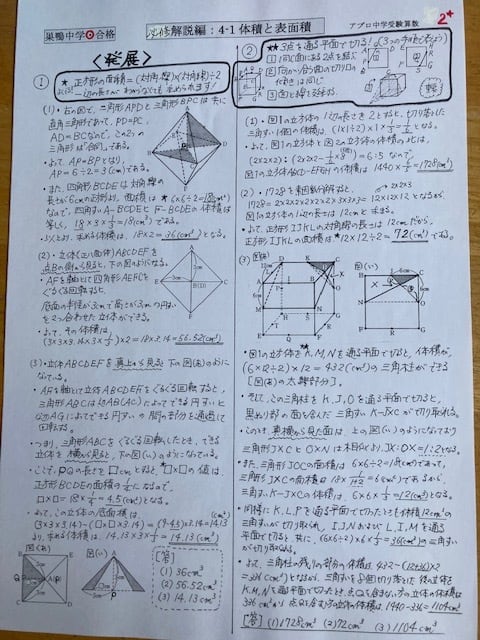 巣鴨中学◎合格
必修解説編：4-1 体積と表面積
アプロ中学受験算数
2*
＜発展＞
①
★ 正方形の面積=(対角線)×(対角線)÷2
一辺の長さがわからなくても求められます!
(1)・右の図で、三角形APDと三角形BPCは共に
直角三角形であって、PD=PC,
AD=BCなので、この2つの
三角形は「合同」である。
・よって、AP=BPとなり、
AP=6÷2=3(cm)である。
・また、四角形BCDEは対角線の
長さが6cmの正方形より、面積は★(6×6÷2=18cm²)
なので、四角すいA-BCDEとF-BCDEの体積は
等しく、18×3×1/3=18(cm³)である。
・以上より、求める体積は、18×2=36(cm³)となる。
(2)・立体(正八面体)ABCDEFを
点Bの側から見ると、下の図のようになる。
・AFを軸として四角形AEFCを
ぐるぐる回転すると、
底面の半径が3cmで高さが3cmの円すい
を2つ合わせた立体ができる。
・よって、その体積は、
(3×3×3.14×3×1/3)×2=18×3.14=56.52(cm³)
(3)・立体ABCDEFを真上から見ると下の図(あ)のように
なっている。
・AFを軸として立体ABCDEFをぐるぐる回転すると、
できる円すいの間の部分を通過して
回転する。
・つまり、三角形ABCをぐるぐる回転したとき、できる
立体を横から見ると、下の図(い)のようになっている。
・ここで、PQの長さを□cmとすると、□×□の値は、
正方形BCDEの面積の1/4になるので、
□×□=18×1/4=4.5(cm²)となる。
・よって、この立体の底面積は、
(3×3×3.14)-(□×□×3.14)=(9-4.5)×3.14=14.13
より、求める体積は、14.13×3×1/3=14.13(cm³)
図(あ)
図(い)
【答】
(1) 36cm³
(2) 56.52cm³
(3) 14.13cm³
②
★★3点を通る平面で切る!
(1)・図1の立方体の1辺の長さを2とすると、切り落とした
三角すい1個の体積は、(1×1÷2)×1×1/3=1/6となる。
・よって、図1の立方体と図2の立体の体積の比は、
(2×2×2):(2×2×2-1/6×8)=6:5なので、
図1の立方体ABCD-EFGHの体積は 1440×6/5=1728(cm³)
(2)・1728を素因数分解すると、
1728=2×2×2×2×2×2×3×3×3=12×12×12となるから、
図1の立方体の1辺の長さは12cmと求まる。
・よって、正方形IJKLの対角線の長さは12cmだから、
正方形IJKLの面積は★12×12÷2=72(cm²)である。
(3)
図(あ)
図(い)
・図1の立方体をK,M,Nを通る平面で切ると、体積が、
(6×12÷2)×12=432(cm³)の三角柱ができる
[図(あ)の太線部分]。
・そして、この三角柱をK,J,Oを通る平面で切ると、
黒ぬり部分の面を含んだ三角すいK-JXCが切り取れる。
・このとき、真横から見た面は、上の図(い)のようになっており
三角形JXCとOXNは相似より、JX:OX=1:2となる。
・また、三角形JOCの面積は6×6÷2=18(cm²)であって、
三角形JXCの面積は18×1/(1+2)=6(cm²)であるから、
三角すいK-JXCの体積は、6×6×1/3=12(cm³)となる。
・同様にK,L,Pを通る平面で切ったときも体積12cm³の
三角すいが切り取られ、I,J,NおよびL,I,Mを通る
平面で切ると、共に、(6×6÷2)×6×1/3=36(cm³)の三角すい
が切り取れる。
・よって、三角柱の残りの部分の体積は、432-(12+36)×2
=336(cm³)となるから、
K,M,Nを通る平面で切ったとき、点Qを含まない方の立体の体積は
336cm³より、点Qを含む方の立体の体積は、1440-336=1104cm³
【答】(1)1728cm³ (2)72cm² (3)1104cm³